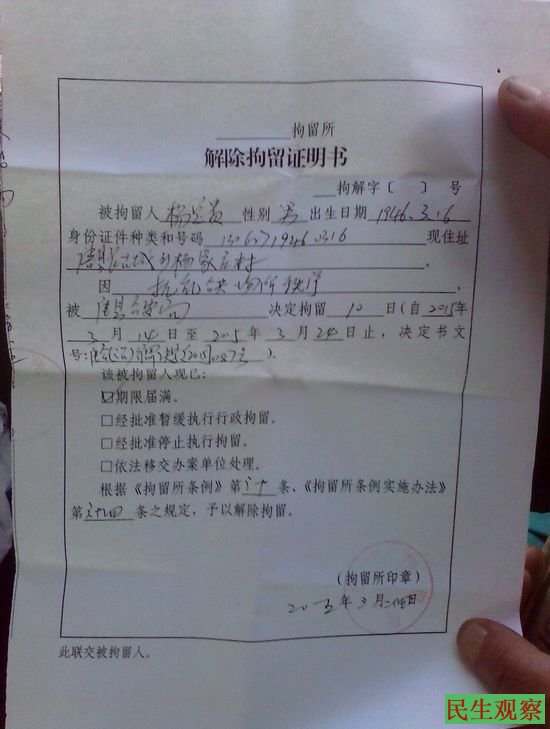 拘留所
解除拘留证明书
拘解字〔 〕 号
被拘留人 杨 性别 男 出生日期 1946.3.16
身份证件种类和号码 现住址
杨家庄村。
因 扰乱公共场所秩序
被 公安局 决定拘留 10 日(自 2015年
3 月 14 日至 2015 年 3 月 24 日止，决定书文
号: )。
该被拘留人现已:
☑期限届满。
□经批准暂缓执行行政拘留。
□经批准停止执行拘留。
□依法移交办案单位处理。
根据《拘留所条例》第 三十 条、《拘留所条例实施办法》
第 条之规定，予以解除拘留。
(拘留所印章)
二〇一五年 3 月 日
此联交被拘留人。
民生观察